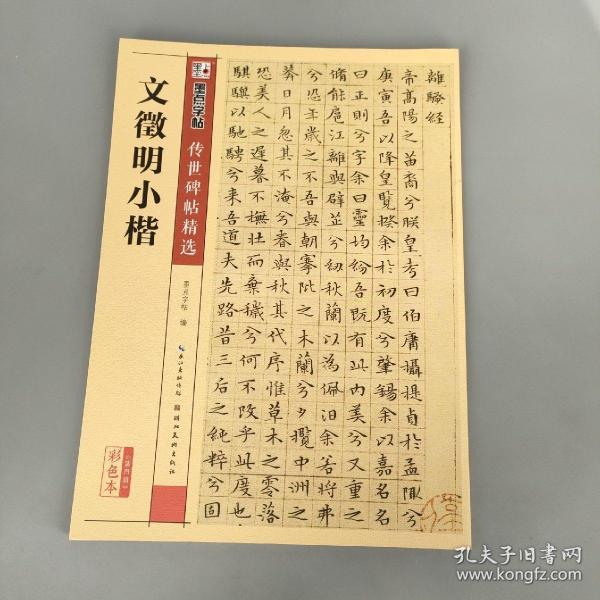 文徵明小楷
墨点字帖
传世碑帖精选
墨点字帖 编
长江出版传媒
湖北美术出版社
彩色本
離騷經
帝高陽之苗裔兮朕皇考曰伯庸攝提貞於孟陬兮
庚寅吾以降皇覽揆余於初度兮肇錫余以嘉名名
曰正則兮字余曰靈均紛吾既有此內美兮又重之
脩能扈江離與辟芷兮紉秋蘭以為佩汩余若將弗
兮恐年歲之不吾與朝搴阰之木蘭兮夕攬中洲之
莽日月忽其不淹兮春與秋其代序惟草木之零落
恐美人之遲暮不撫壯而棄穢兮何不改乎此度也
騏驥以馳騁兮来吾道夫先路昔三后之純粹兮固
孔夫子旧书网
www.kongfz.com